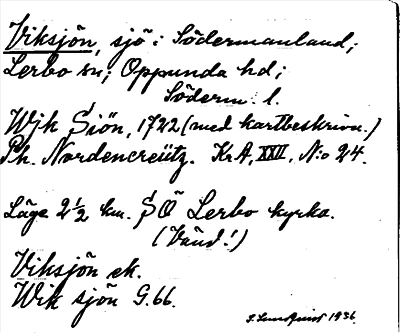 Viksjön, sjö i Södermanland;
Lerbo sn; Oppunda hd;
Söderm. l.
Wijk Siön, 1722 (med kartbeskrivn.)
Ph. Nordencreütz. Kr.A, XXII, N:o 24.
Läge 2 1/2 km. SÖ Lerbo kyrka.
(Vänd!)
Viksjön ek.
Wik sjön G.66.
S. Lundquist 1936